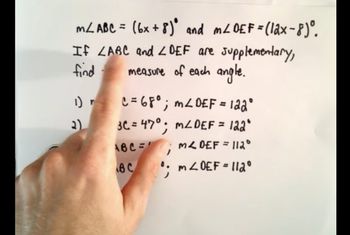 m∠ABC = (6x + 8)° and m∠DEF = (12x - 8)°.
If ∠ABC and ∠DEF are supplementary,
find measure of each angle.
1) C = 68° ; m∠DEF = 122°
2) BC = 47° ; m∠DEF = 122°
ABC = ; m∠DEF = 112°
BC ° ; m∠DEF = 112°